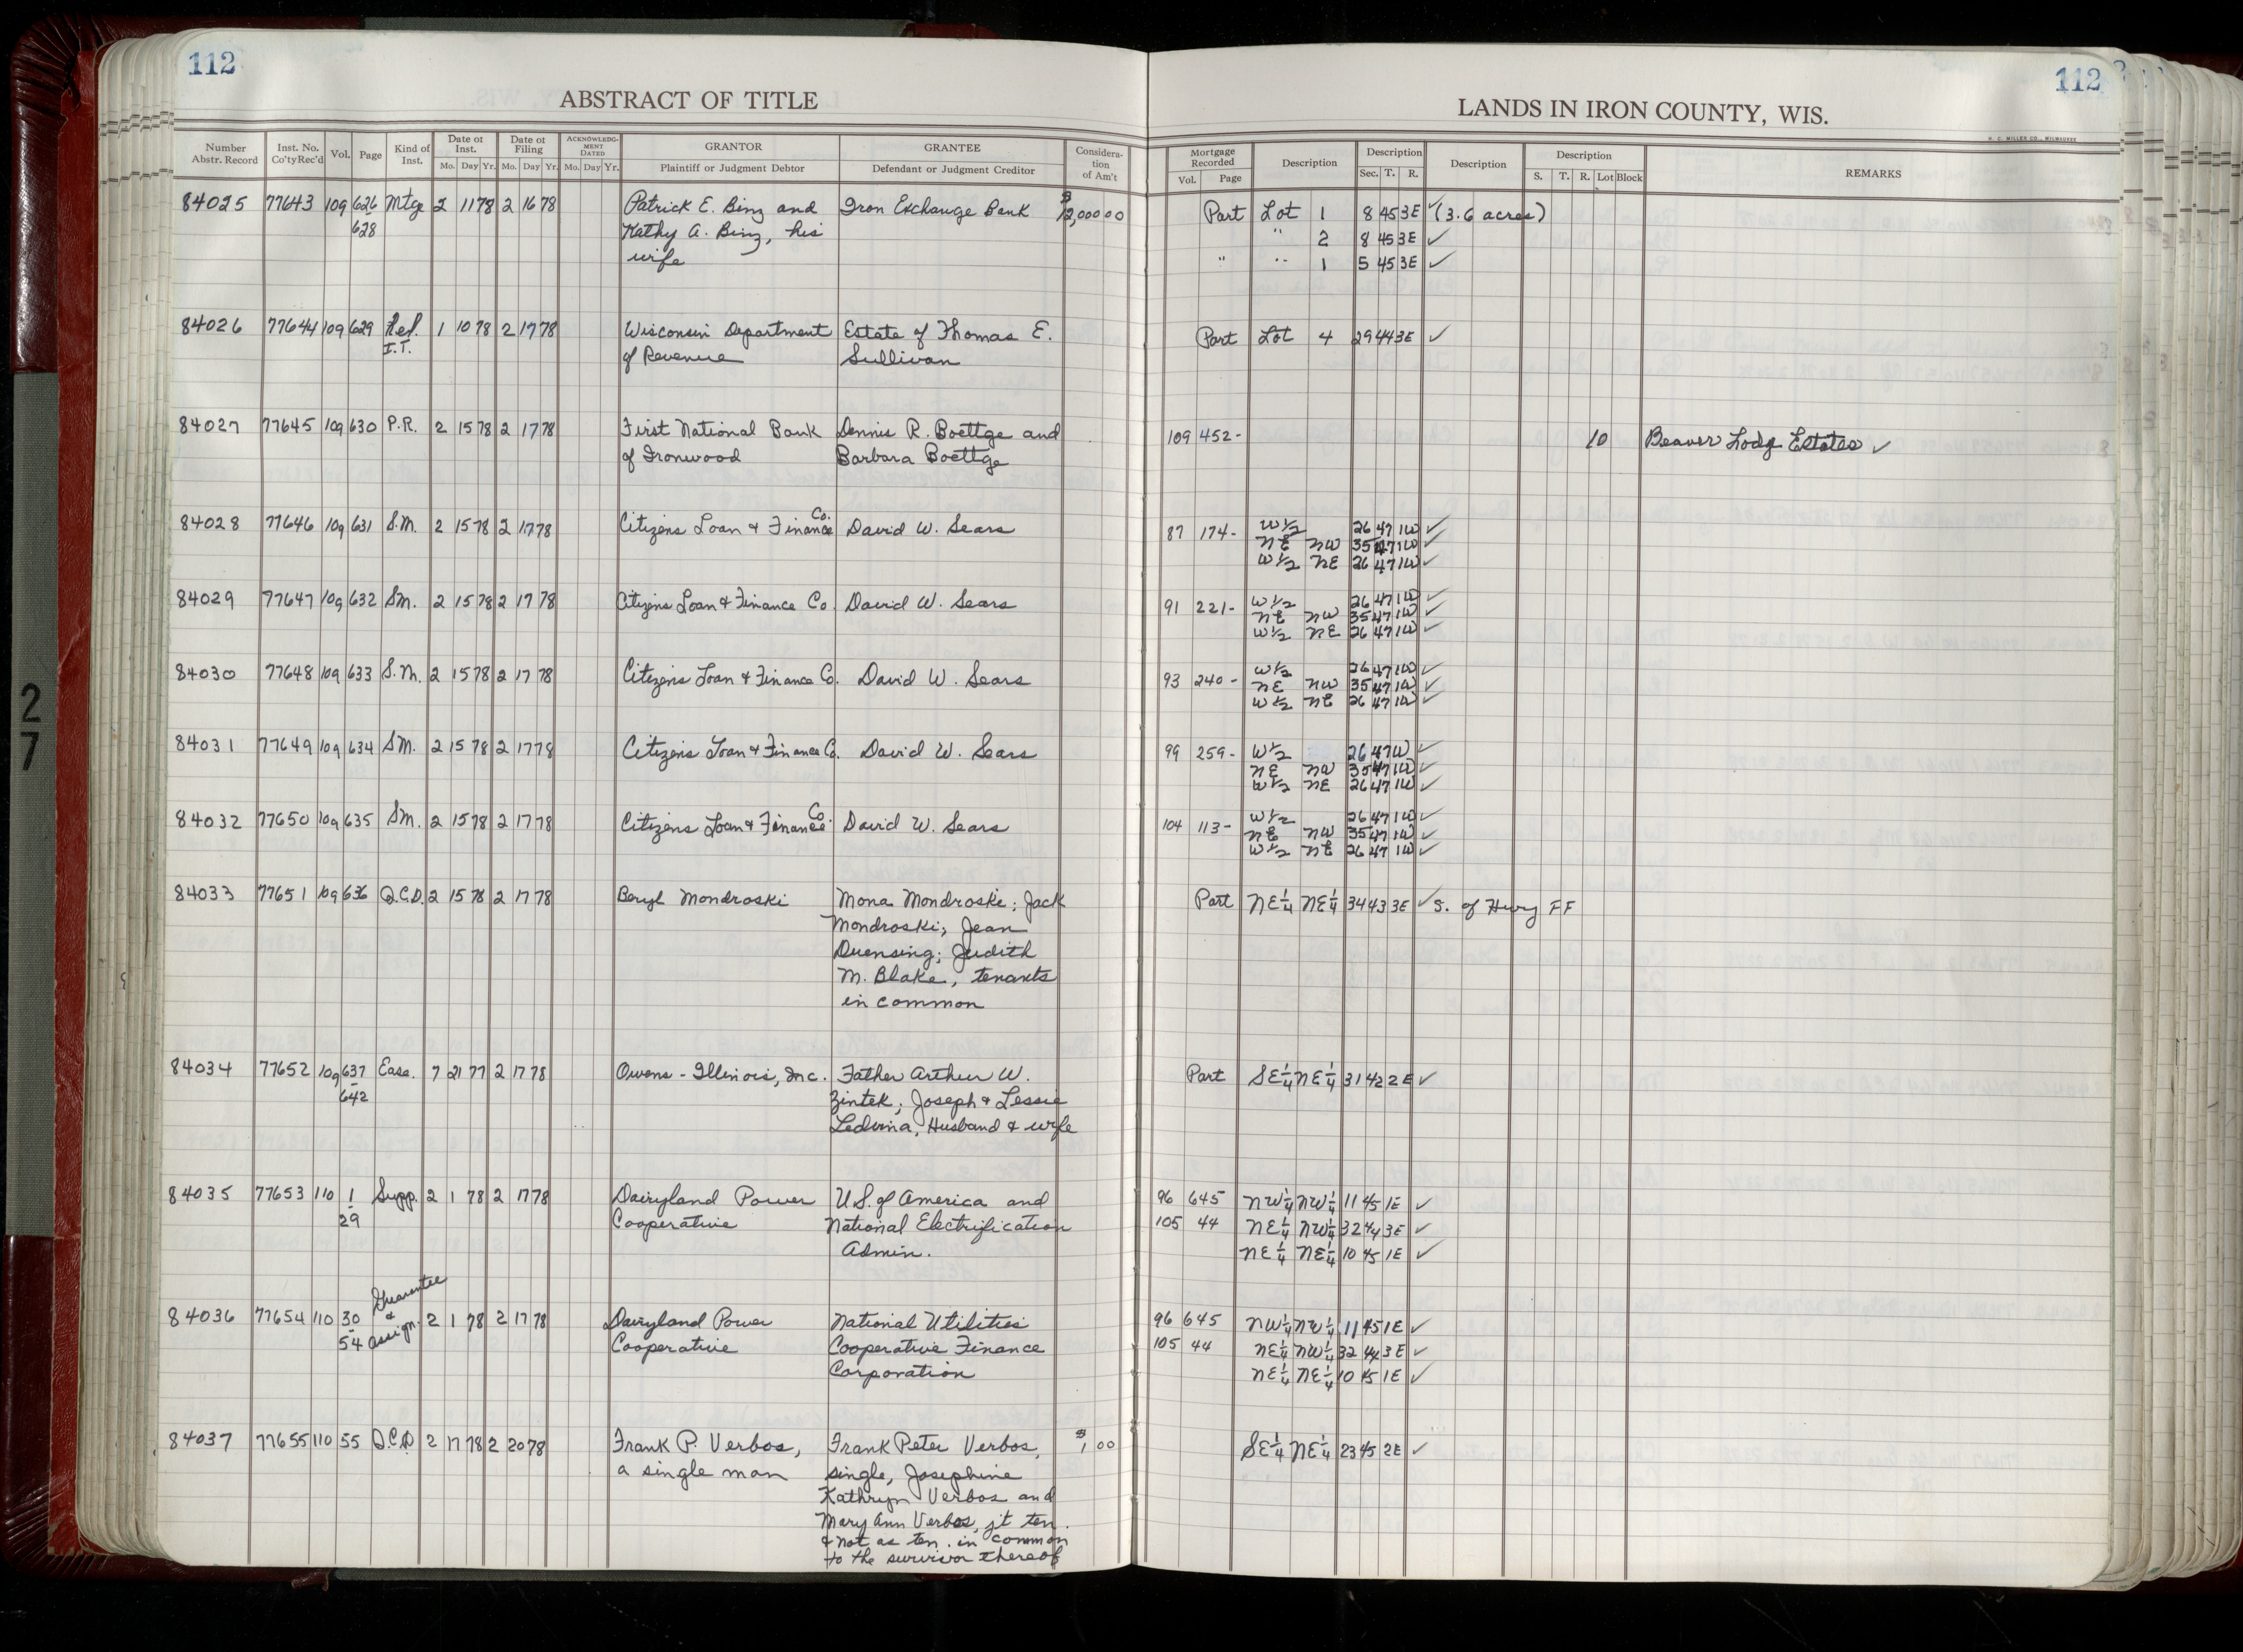 112
ABSTRACT OF TITLE
Number Abstr. Record | Inst. No. Co'ty Rec'd | Vol. | Page | Kind of Inst. | Date of Inst. Mo. Day Yr. | Date of Filing Mo. Day Yr. | ACKNOWLEDGMENT DATED Mo. Day Yr. | GRANTOR Plaintiff or Judgment Debtor | GRANTEE Defendant or Judgment Creditor | Consideration of Am't
84025 77643 109 626 Mtge 2 11 78 2 16 78 Patrick E. Binz and Iron Exchange Bank $12,000 00
628 Kathy A. Binz, his
wife
84026 77644 109 629 Rel. 1 10 78 2 17 78 Wisconsin Department Estate of Thomas E.
I.T. of Revenue Sullivan
84027 77645 109 630 P.R. 2 15 78 2 17 78 First National Bank Dennis R. Boettge and
of Ironwood Barbara Boettge
84028 77646 109 631 S.M. 2 15 78 2 17 78 Citizens Loan & Finance Co. David W. Sears
84029 77647 109 632 S.M. 2 15 78 2 17 78 Citizens Loan & Finance Co. David W. Sears
84030 77648 109 633 S.M. 2 15 78 2 17 78 Citizens Loan & Finance Co. David W. Sears
84031 77649 109 634 S.M. 2 15 78 2 17 78 Citizens Loan & Finance Co. David W. Sears
84032 77650 109 635 S.M. 2 15 78 2 17 78 Citizens Loan & Finance Co. David W. Sears
84033 77651 109 636 Q.C.D. 2 15 78 2 17 78 Beryl Mondroski Mona Mondroski; Jack
Mondroski; Jean
Duensing; Judith
M. Blake, tenants
in common
84034 77652 109 637 Ease. 7 21 77 2 17 78 Owens-Illinois, Inc. Father Arthur W.
642 Zintek; Joseph & Lessie
Ledvina, Husband & wife
84035 77653 110 1 Supp. 2 1 78 2 17 78 Dairyland Power U.S. of America and
29 Cooperative National Electrification
Admin.
Guarantee
84036 77654 110 30 & 2 1 78 2 17 78 Dairyland Power National Utilities
54 Assign. Cooperative Cooperative Finance
Corporation
84037 77655 110 55 Q.C.D 2 17 78 2 20 78 Frank P. Verbos, Frank Peter Verbos, $1 00
a single man single, Josephine
Kathryn Verbos and
Mary Ann Verbos, jt ten.
& not as ten. in common
to the survivor thereof
112
LANDS IN IRON COUNTY, WIS.
H. C. MILLER CO., MILWAUKEE
Mortgage Recorded Vol. Page | Description | Description Sec. T. R. | Description | Description S. T. R. Lot Block | REMARKS
Part Lot 1 8 45 3E ✓ (3.6 acres)
" 2 8 45 3E ✓
" " 1 5 45 3E ✓
Part Lot 4 29 44 3E ✓
109 452- 10 Beaver Lodge Estates ✓
87 174- W½ 26 47 1W ✓
NE NW 35 47 1W ✓
W½ NE 26 47 1W ✓
91 221- W½ 26 47 1W ✓
NE NW 35 47 1W ✓
W½ NE 26 47 1W ✓
93 240- W½ 26 47 1W ✓
NE NW 35 47 1W ✓
W½ NE 26 47 1W ✓
99 259- W½ 26 47 1W ✓
NE NW 35 47 1W ✓
W½ NE 26 47 1W ✓
104 113- W½ 26 47 1W ✓
NE NW 35 47 1W ✓
W½ NE 26 47 1W ✓
Part NE¼ NE¼ 34 43 3E ✓ S. of Hwy FF
Part SE¼ NE¼ 31 42 2E ✓
96 645 NW¼ NW¼ 11 45 1E ✓
105 44 NE¼ NW¼ 32 44 3E ✓
NE¼ NE¼ 10 45 1E ✓
96 645 NW¼ NW¼ 11 45 1E ✓
105 44 NE¼ NW¼ 32 44 3E ✓
NE¼ NE¼ 10 45 1E ✓
SE¼ NE¼ 23 45 2E ✓
27